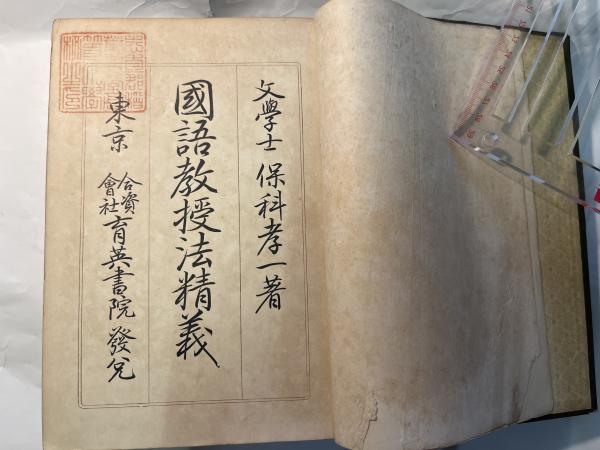 文學士 保科孝一著
國語教授法精義
東京 合資會社 育英書院 發兌